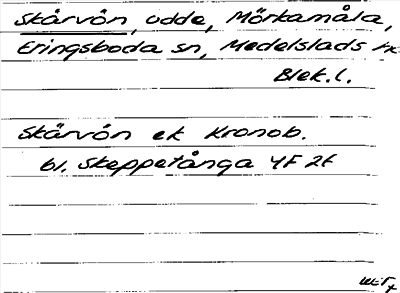 Skårvön, udde, Mörkamåla,
Eringsboda sn, Medelstads hd
Blek.l.
Skärvön ek Kronob.
bl. Skeppetånga 4F 2f